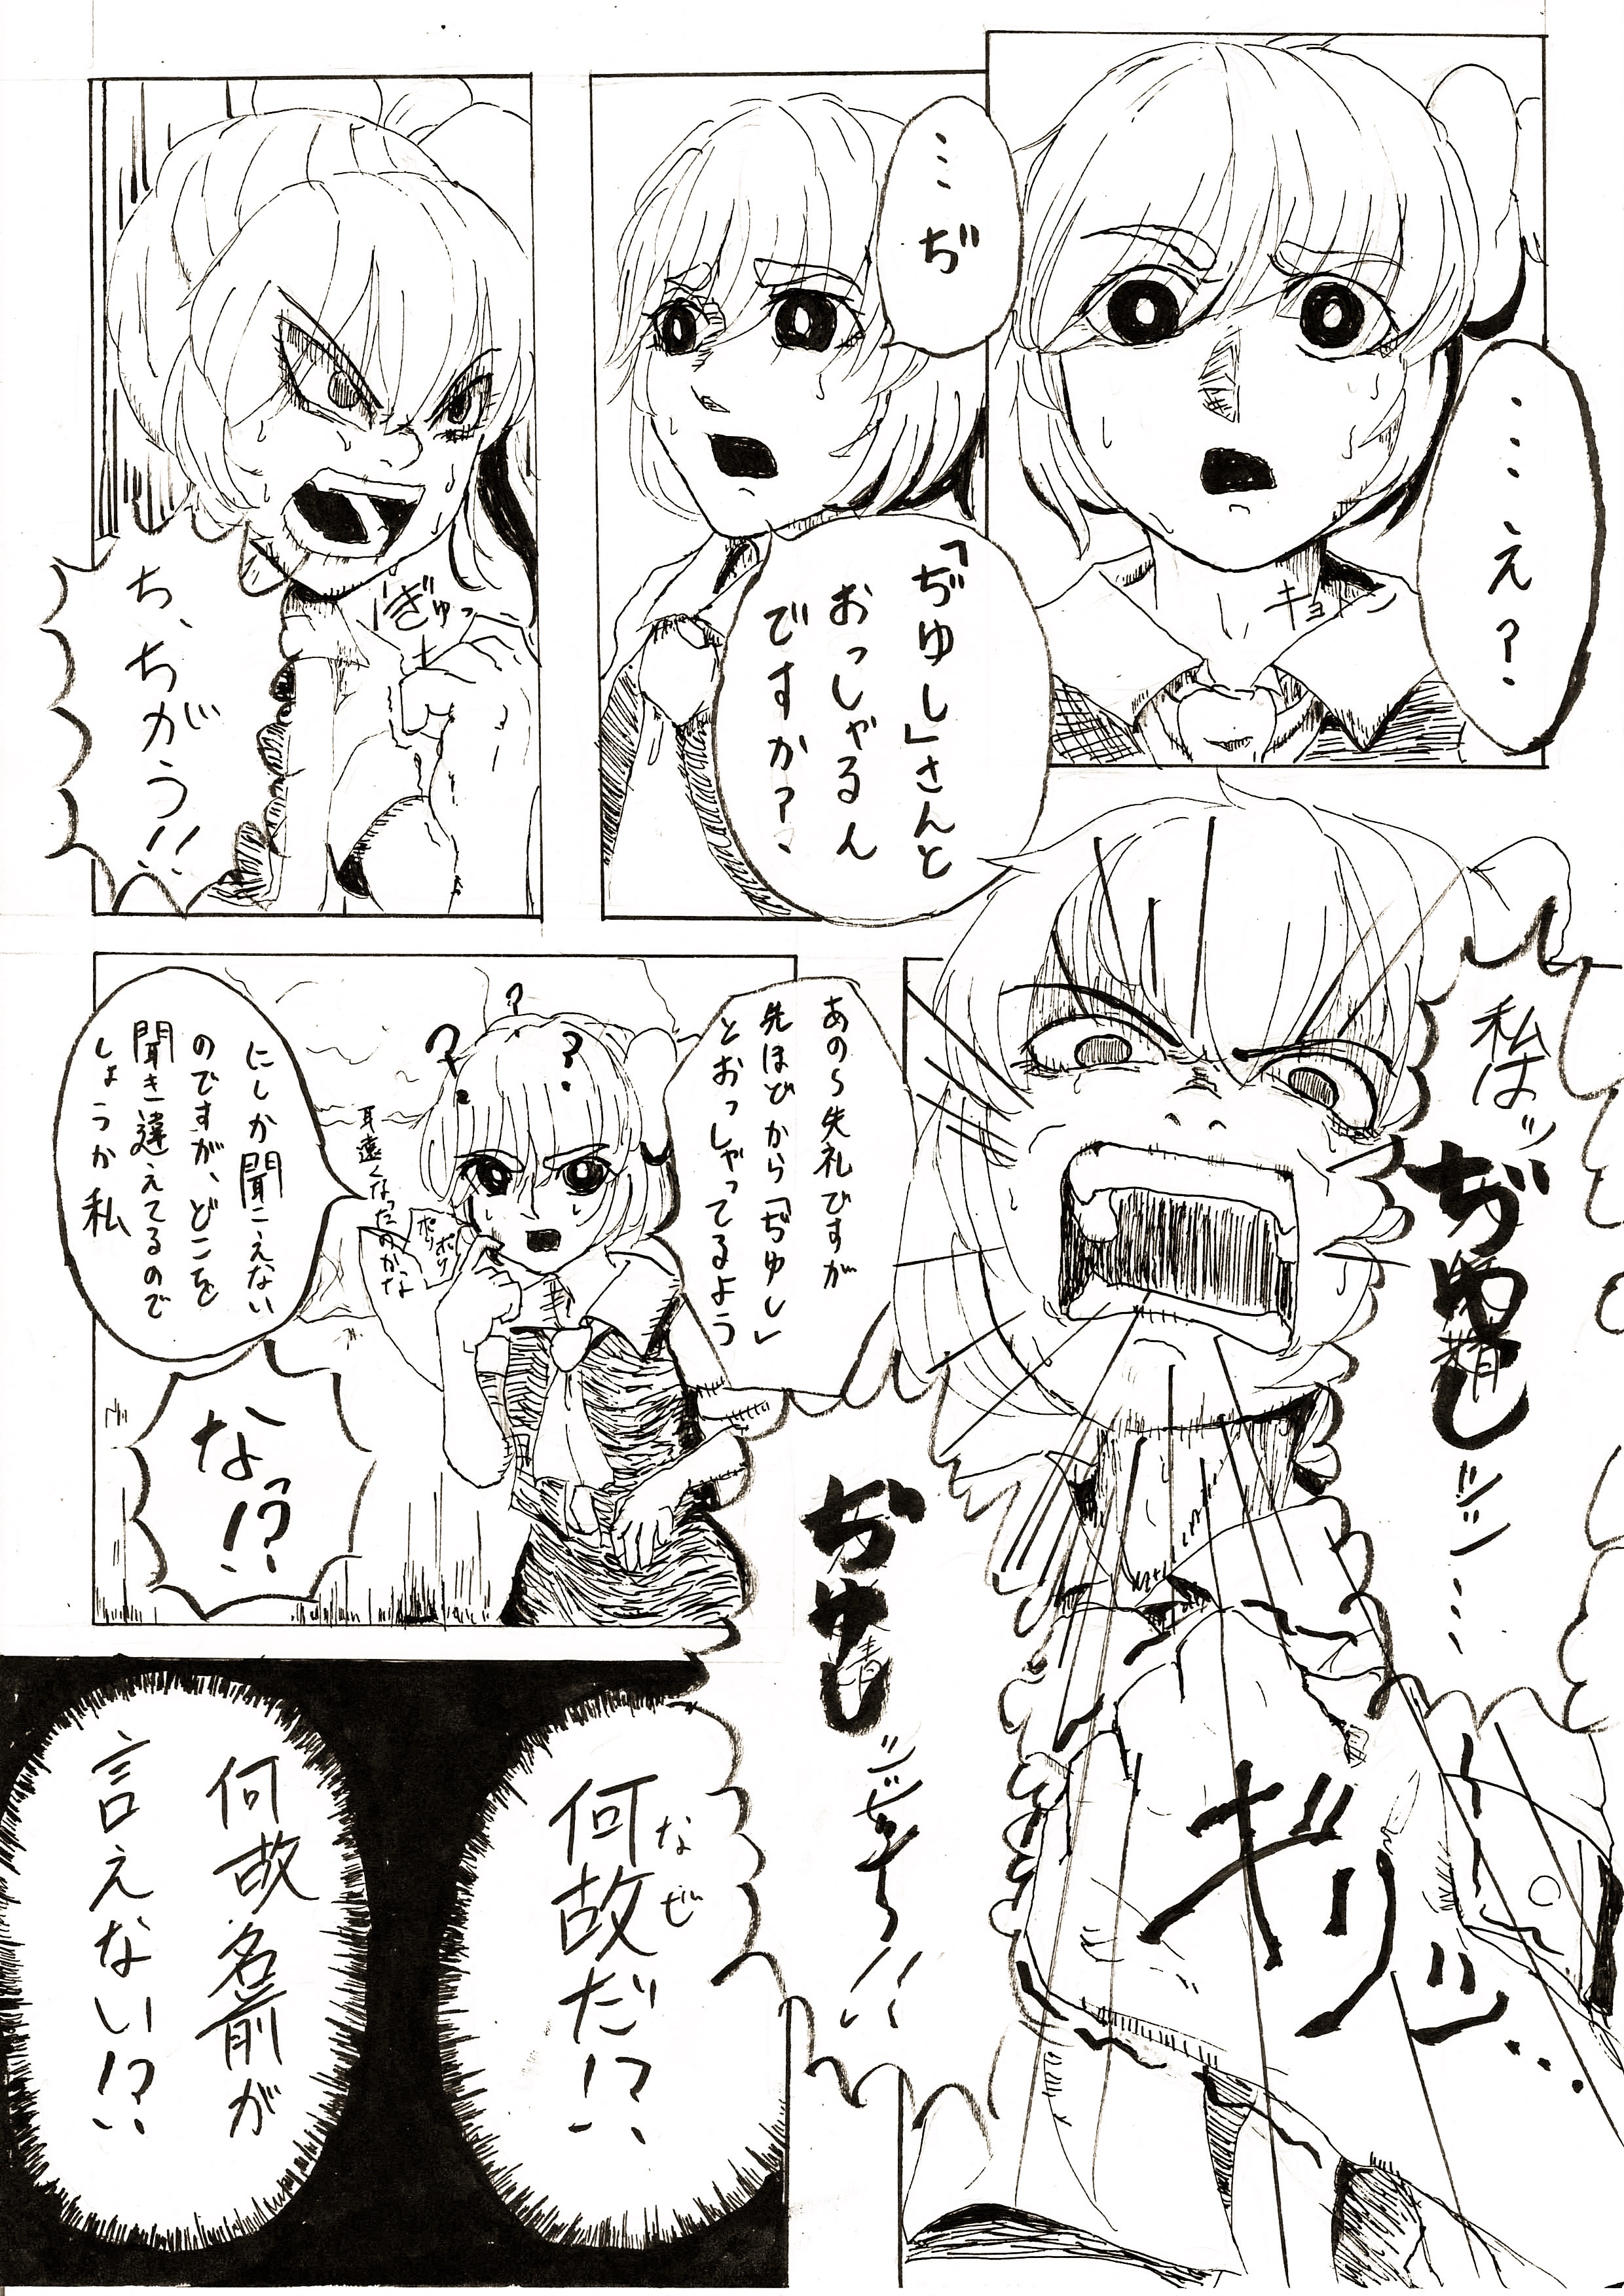 …え？
キョトン
…ぢ
「ぢゆし」さんと
おっしゃるん
ですか？
ち、ちがう!!
ぎゅっ
私はッ
ぢゆし
ッッ…
ギリッ…
ぢゆし
あのら失礼ですが
先ほどから「ぢゆし」
とおっしゃってるよう
にしか聞こえない
のですが、どこを
聞き違えてるので
しょうか私
？
？
？
耳遠くなったのかな
ポリポリ
なっ!?
何故だ!?
なぜ
何故名前が
言えない!?